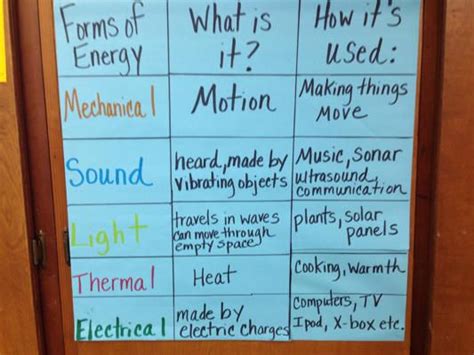 Forms of
Energy
What is
it?
How it's
used:
Mechanical
Motion
Making things
Move
Sound
heard, made by
vibrating objects
Music, Sonar
ultrasound
communication
Light
travels in waves
can move through
empty space
plants, solar
panels
Thermal
Heat
Cooking, Warmth
Electrical
made by
electric charges
Computers, TV
Ipod, X-box etc.